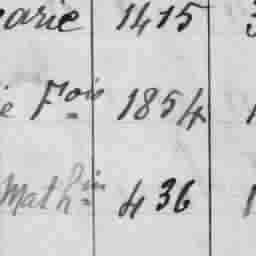 arie 1415
e Fois 1854
Mathin 436